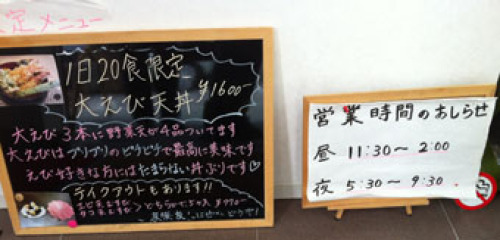 定メニュー
1日20食限定
大えび天丼 ¥1600-
大えび3本に野菜天が4品ついてます
大えびはプリプリのビチビチで最高に美味です
えび好きな方にはたまらない丼ぶりです♡
テイクアウトもあります!!
営業時間のおしらせ
昼 11:30〜2:00
夜 5:30〜9:30